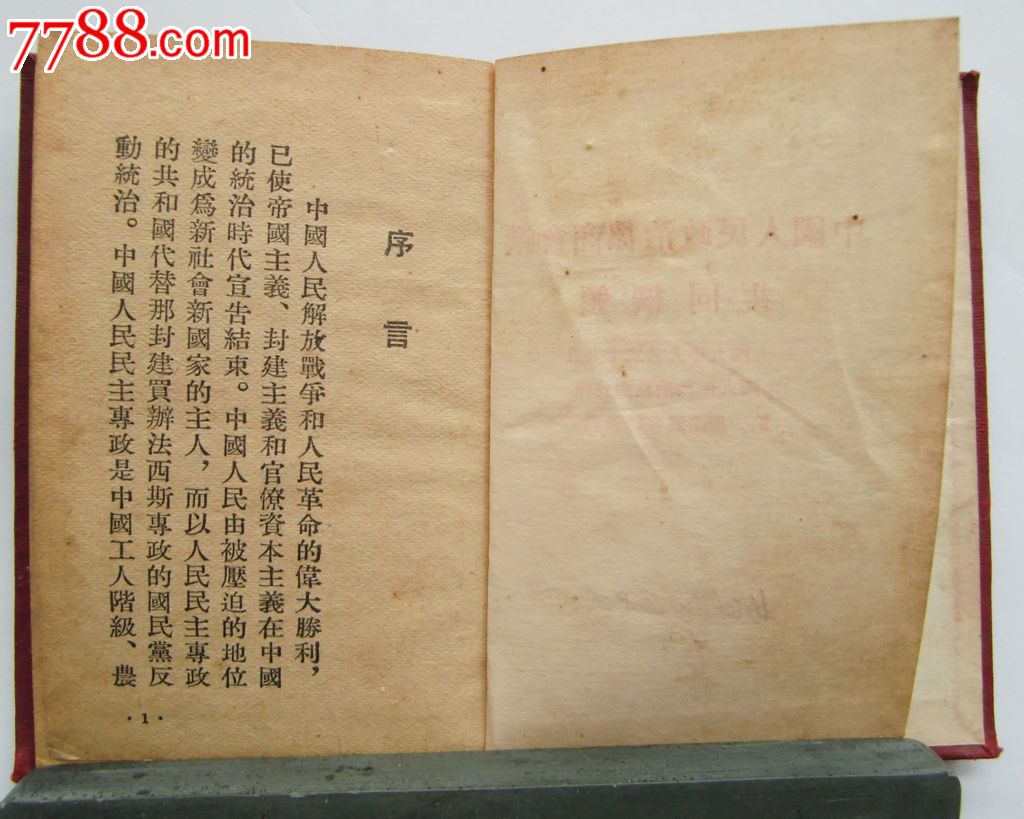 7788.com
序言
中國人民解放戰爭和人民革命的偉大勝利，
已使帝國主義、封建主義和官僚資本主義在中國
的統治時代宣告結束。中國人民由被壓迫的地位
變成爲新社會新國家的主人，而以人民民主專政
的共和國代替那封建買辦法西斯專政的國民黨反
動統治。中國人民民主專政是中國工人階級、農
·1·